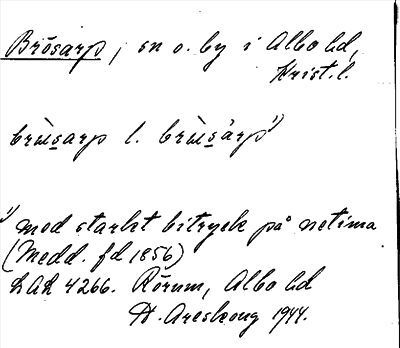 Brösarp, sn o. by i Albo hd,
Krist. l.
brùsarp l. brùsàrp 1)
1) med starkt bitryck på
(Medd. fd 1856)
LAL 4266. Rörum, Albo hd
H. Areskoug 1944.